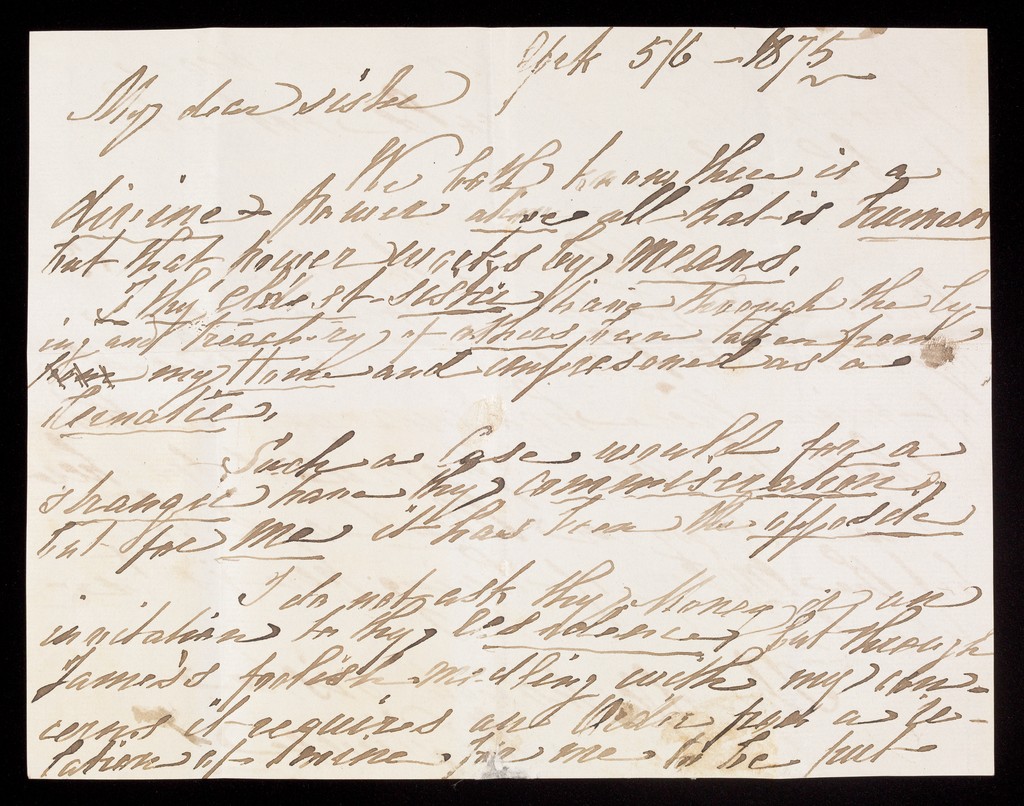 York 5/6 - 1875
My dear sister
We both know there is a
divine power above all that is human
but that power works by means.
I thy eldest sister having through the ly-
ing and treachery of others been taken from
my Home and imprisoned as a
Lunatic.
Such a Case would for a
stranger have thy commiseration,
but for me it has been the opposite
I do not ask thy Money or an
invitation to thy residence, but through
James's foolish medling with my con-
cerns it requires an Order from a re-
lation of mine for me to be put